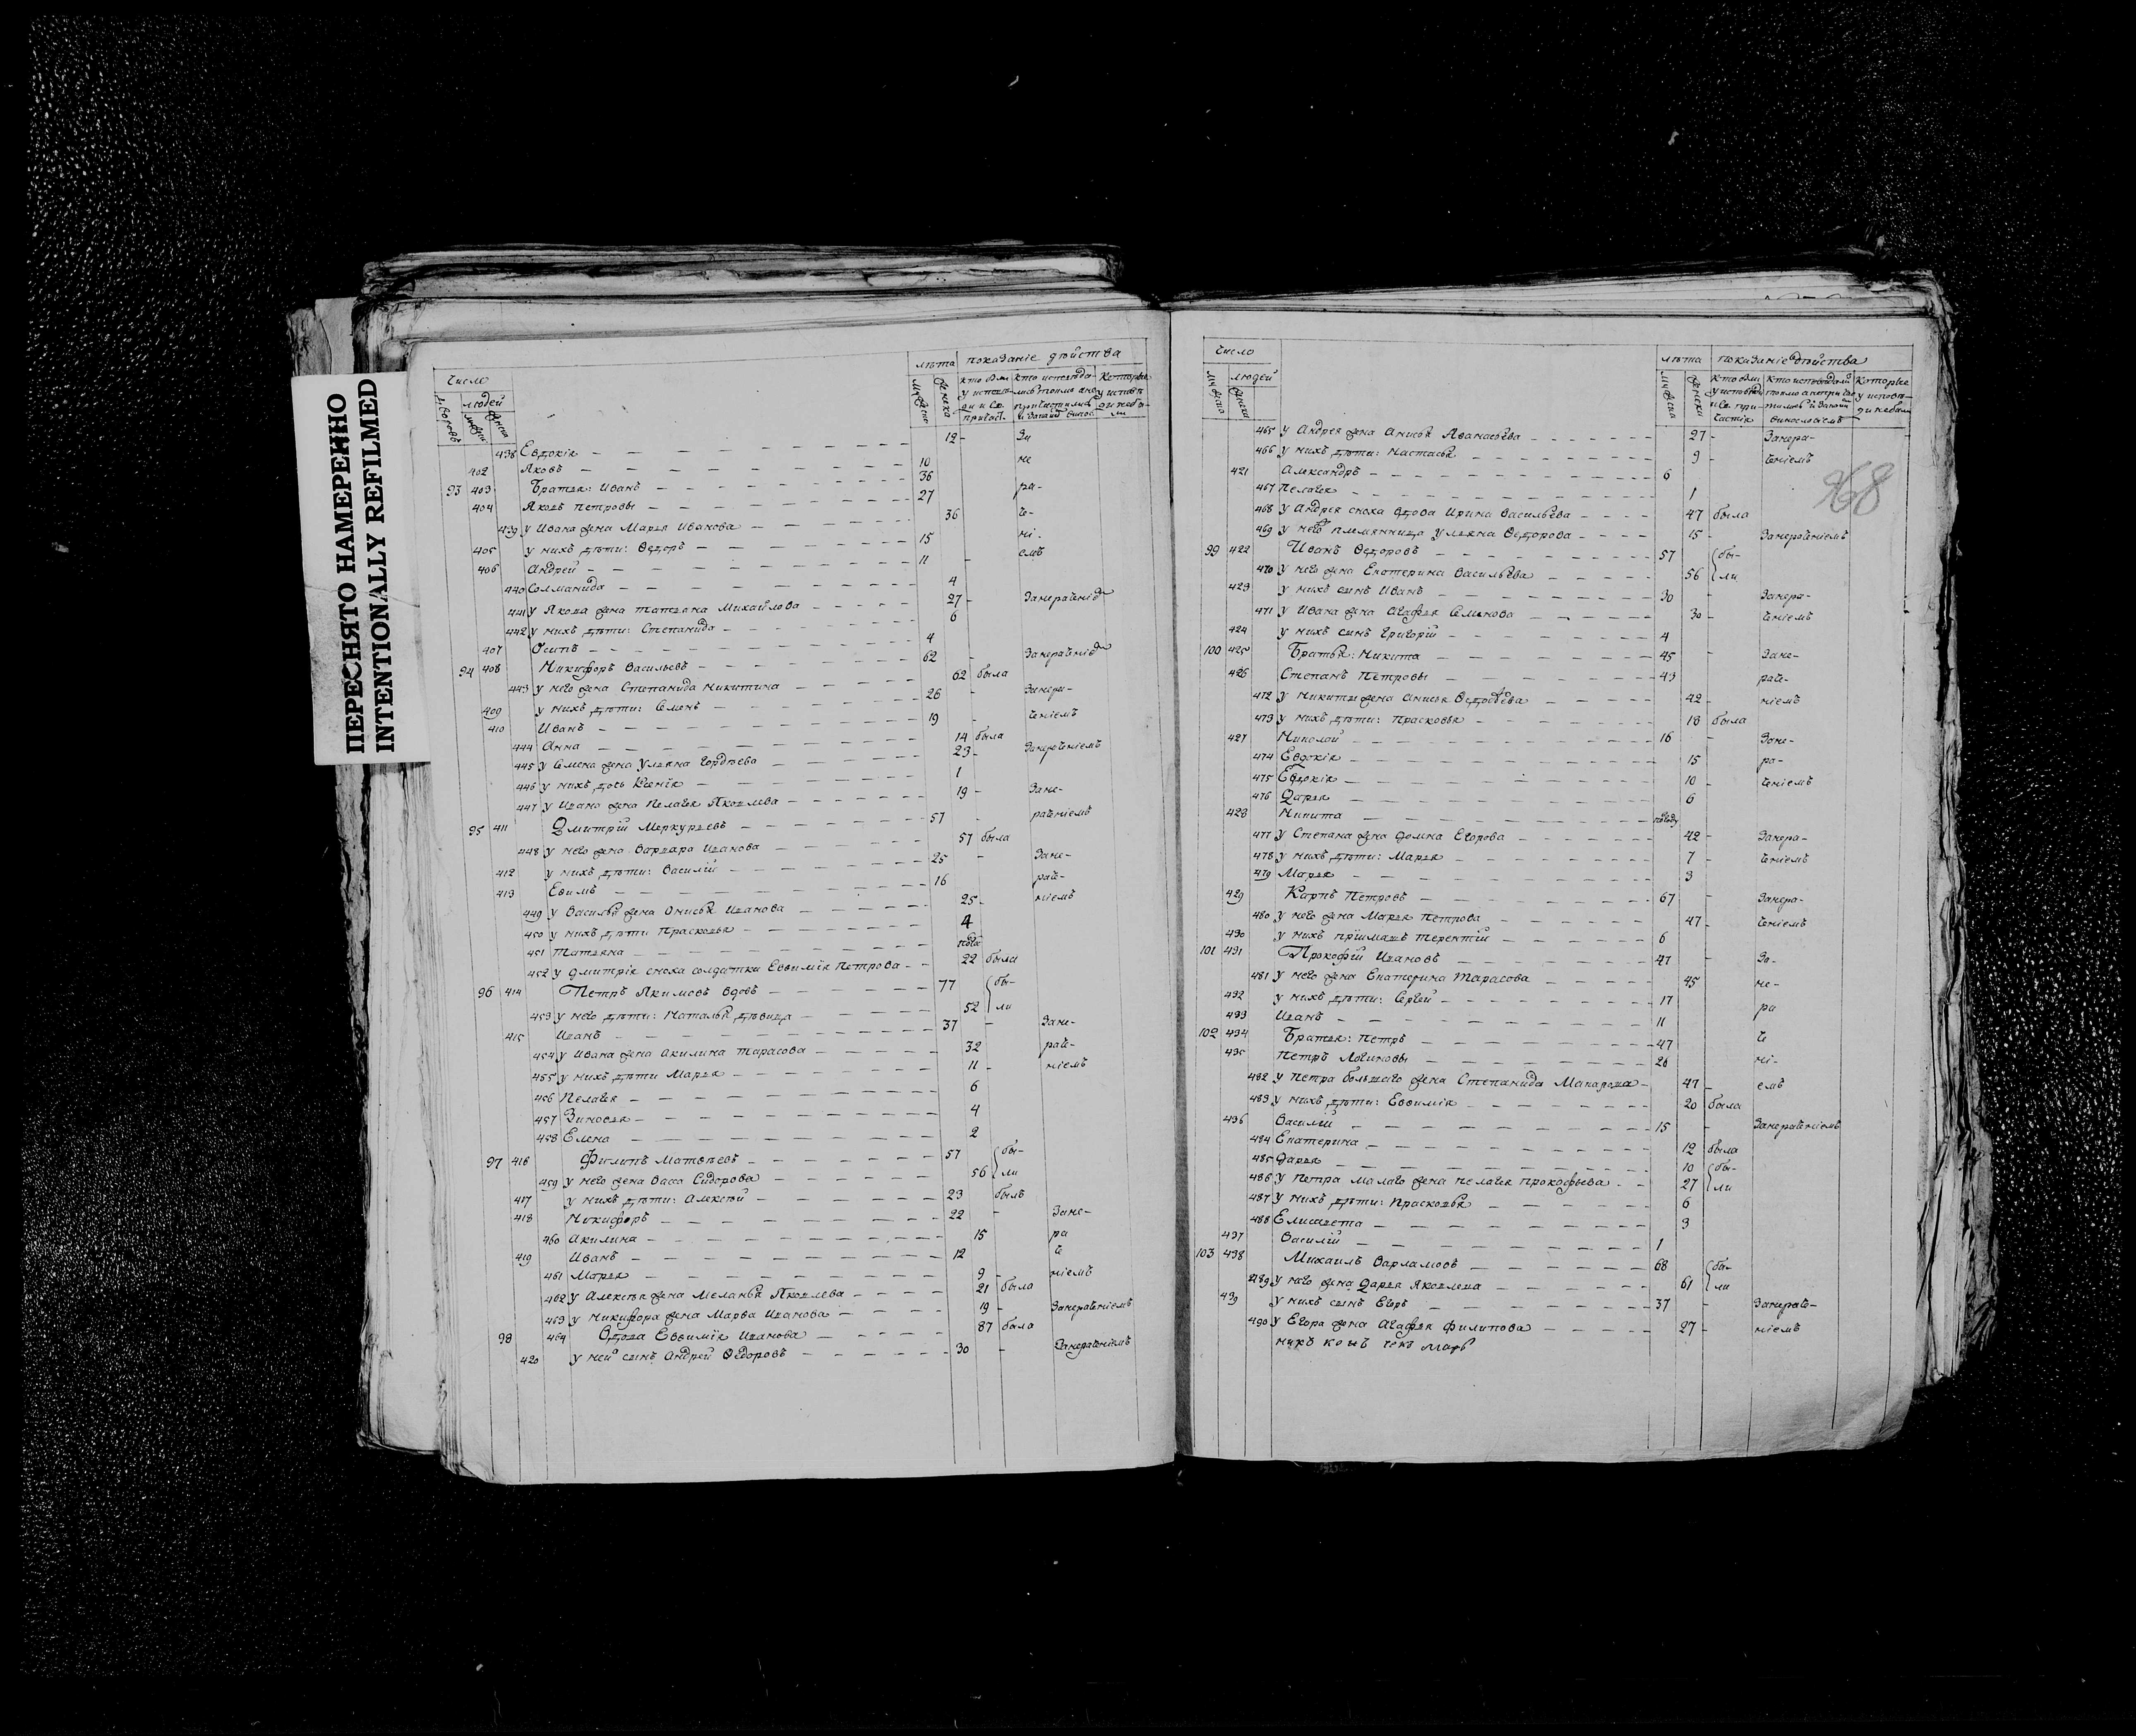 ПЕРЕСНЯТО НАМЕРЕННО
INTENTIONALLY REFILMED
число лѣта показаніе дѣйства
дворовъ людей
438 Евдокія 12 - За
402 Яковъ 10 не
93 403 Братья: Иванъ 36
404 Яковъ Петровы 27 ра-
439 у Ивана жена Марья Иванова 36 че-
405 у нихъ дѣти: Ѳедоръ 15 ні-
406 Андрей 11 емъ
440 Соломанида 4
441 у Якова жена Татьяна Михайлова 27 -
442 у нихъ дѣти: Степанида 6
407 Осипъ 4
94 408 Никифоръ Васильевъ 62 -
443 у него жена Степанида Никитина 62 была
409 у нихъ дѣти: Семенъ 26 - Занера-
410 Иванъ 19 ченіемъ
444 Анна 14 была
445 у Семена жена Ульяна Гордѣева 23 - Занераченіемъ
446 у нихъ дочь Ксенія 1
447 у Ивана жена Пелагея Яковлева 19 - Зане-
95 411 Дмитрій Меркурьевъ 57 - раченіемъ
448 у него жена Варвара Иванова 57 была
412 у нихъ дѣти: Василій 25 - Зане-
413 Евимъ 16 рач-
449 у Василья жена Онисья Иванова 25 - ніемъ
450 у нихъ дѣти Прасковья 4
451 Татьяна
452 у Дмитрія сноха солдатка Евѳимія Петрова 22 была
96 414 Петръ Якимовъ вдовъ 77 бы-
453 у него дѣти: Наталья дѣвица 52 ли
415 Иванъ 37 - Зане-
454 у Ивана жена Акилина Тарасова 32 рач-
455 у нихъ дѣти Марья 11 - ніемъ
456 Пелагея 6
457 Зиновья 4
458 Елена 2
97 416 Филипъ Матвѣевъ 57 бы-
459 у него жена Васса Сидорова 56 ли
417 у нихъ дѣти: Алексѣй 23 былъ
418 Никифоръ 22 - Зане-
460 Акилина 15 ра
419 Иванъ 12 че
461 Марья 9 - ніемъ
462 у Алексѣя жена Меланья Яковлева 21 была
463 у Никифора жена Марѳа Иванова 19 - Занераченіемъ
98 464 Вдова Евѳимія Иванова 87 была
420 у ней сынъ Андрей Ѳедоровъ 30 - Занераченіемъ
число лѣта показаніе дѣйства
людей
468
465 у Андрея жена Анисья Аѳанасьева 27 - Занера-
466 у нихъ дѣти: Настасья 9 - ченіемъ
421 Александръ 6
467 Пелагея 1
468 у Андрея сноха вдова Ирина Васильева 47 была
469 у него племянница Ульяна Ѳедорова 15 - Занераченіемъ
99 422 Иванъ Ѳедоровъ 57 бы-
470 у него жена Екатерина Васильева 56 ли
423 у нихъ сынъ Иванъ 30 - Занера-
471 у Ивана жена Агафья Семенова 30 - ченіемъ
424 у нихъ сынъ Григорій 4
100 425 Братья: Никита 45 - Зане-
426 Степанъ Петровы 43 рач-
472 у Никиты жена Анисья Ѳедотова 42 - ніемъ
473 у нихъ дѣти: Прасковья 18 была
427 Николай 16 - Зане-
474 Евдокія 15 ра-
475 Евдокія 10 - ченіемъ
476 Дарья 6
428 Никита
477 у Степана жена Домна Егорова 42 - Занера-
478 у нихъ дѣти: Марья 7 - ченіемъ
479 Марья 3
429 Карпъ Петровъ 67 - Занера-
480 у него жена Марья Петрова 47 - ченіемъ
430 у нихъ пріимышъ Терентій 6
101 431 Прокофій Ивановъ 47 - За-
481 у него жена Екатерина Тарасова 45 не-
432 у нихъ дѣти: Сергѣй 17 ра
433 Иванъ 11
102 434 Братья: Петръ 47 че
435 Петръ Логиновы 26 ні-
482 у Петра большаго жена Степанида Макарова 47 - емъ
483 у нихъ дѣти: Евѳимія 20 была
436 Василій 15 - Занераченіемъ
484 Екатерина 12 была
485 Дарья 10 бы-
486 у Петра малаго жена Пелагея Прокофьева 27 ли
487 у нихъ дѣти: Прасковья 6
488 Елисавета 3
437 Василій 1
103 438 Михаилъ Варламовъ 68 бы-
489 у него жена Дарья Яковлева 61 ли
439 у нихъ сынъ Егоръ 37 - Занераче-
490 у Егора жена Агафья Филипова 27 - ніемъ